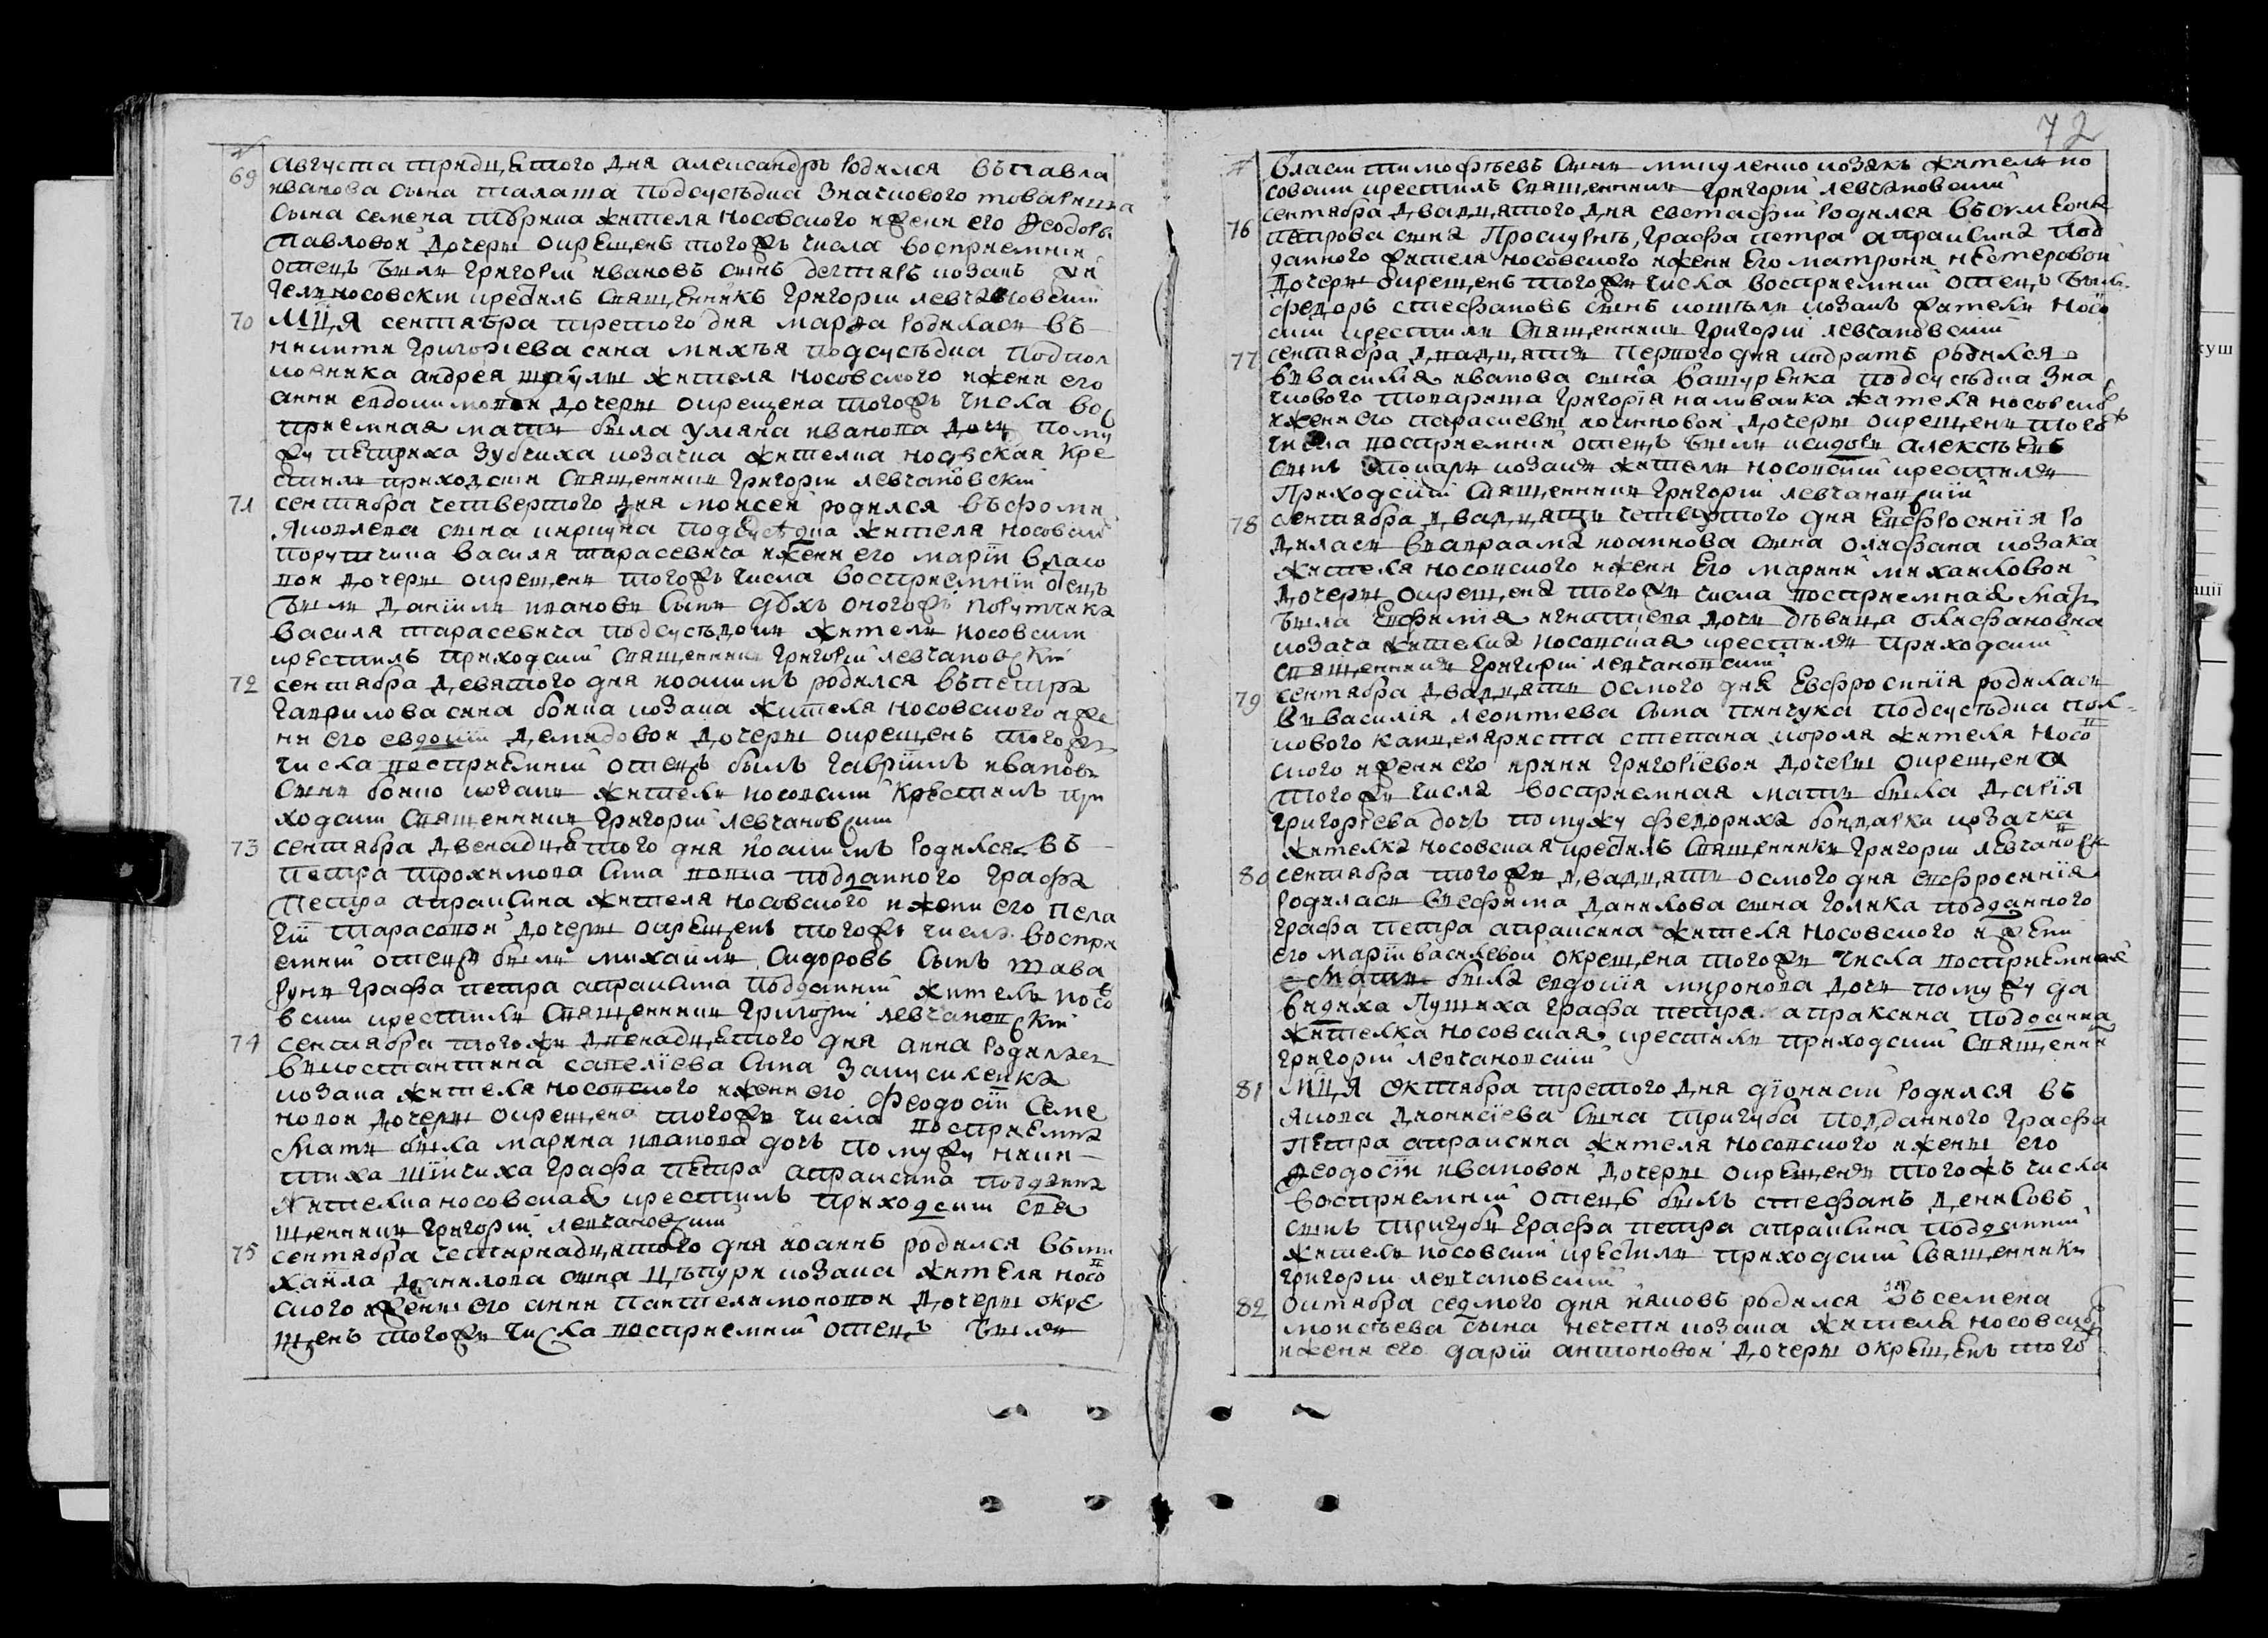 69 Августа тридцетого дня александръ родился въ павла
иванова сына талата подсусѣдка значкового товарища
сына семена жителя носовского и жени его феодоры
павловой дочеры окрещенъ того жъ числа восприемній
отецъ былъ григорій ивановъ сынъ дегтяръ козакъ жи
тель носовскій крестилъ священникъ григорій левчановскій
70 мця сентября третого дня марфа родиласъ въ
никити григоріева сина михѣя подсусѣдка подпол
ковника андрея жителя носовского и жени его
анни евдокимовой дочеры окрещена того жъ числа вос
приемная мать была уляна иванова дочъ по му
жу петриха зубчиха козачка жителка носовская кре
стилъ приходскій священникъ григорій левчановскій
71 сентября четвертого дня моисей родился въ фоми
яковлева сына подсусѣдка жителя носовскаг
порутчика василя тарасевича и жени его маріи власо
вой дочеры окрещенъ того жъ числа восприемній отецъ
былъ даніилъ ивановъ сынъ оного жъ порутчика
василя тарасевича подсусѣдокъ жителъ носовскій
крестилъ приходскій священникъ григорій левчановскій
72 сентября девятого дня иоакимъ родился въ петра
гаврилова сина бойка козака жителя носовского и же
ни его евдокіи демидовой дочеры окрещенъ того жъ
числа восприемній отецъ былъ гавріилъ ивановъ
сынъ бойко козакъ жителъ носовскій крестилъ при
ходскій священникъ григорій левчановскій
73 сентября двенадцетого дня иоакимъ родился въ
петра трохимова сина попка подданного графа
петра апраксина жителя носовского и жени его пела
гіи тарасовой дочеры окрещенъ того жъ числа воспри
емній отецъ былъ михаилъ сидоровъ сынъ
графа петра апраксина подданній жителъ носо
вскій крестилъ священникъ григорій левчановскій
74 сентября того жъ двенадцетого дня анна родиласъ
въ костантина савелієва сина
козака жителя носовского и жени его феодосіи семе
новой дочеры окрещена того жъ числа восприемна
мать была марина иванова дочъ по мужу ники
тиха графа петра апраксина подданна
жителка носовская крестилъ приходскій свя
щенникъ григорій левчановскій
75 сентября четирнадцятого дня иоаннъ родился въ ми
хаила данилова сина цѣпури козака жителя носов
ского и жены его анни пантелимоновой дочеры окре
щенъ того жъ числа восприемній отецъ былъ
72
власій тимофѣевъ синъ микуленко козакъ жителъ но
совскій крестилъ священникъ григорій левчановскій
76 сентября двадцятого дня евстафій родился въ симеона
петрова сина графа петра апраксина под
данного жителя носовского и жени его матрони нестеровой
дочеры окрещенъ того жъ числа восприемній отецъ былъ
федоръ стефановъ синъ козакъ жителъ носов
скій крестилъ священникъ григорій левчановскій
77 сентября двадцять первого дня кодратъ родился
въ василія иванова сина батуренка подсусѣдка зна
чкового товариша григорія наливайка жителя носовског
и жени его парасковеи иоанновой дочеры окрещенъ того ж
числа восприемній отецъ былъ исидоръ алексѣевъ
синъ козакъ жителъ носовскій крестилъ
приходскій священникъ григорій левчановскій
78 сентября двадцять четвертого дня евфросинія ро
диласъ въ авраама иоаннова сина олифана козака
жителя носовского и жени его марини михаиловой
дочеры окрещена того жъ числа восприемная мать
была евфимія игнатіева дочъ дѣвица олифановна
козача жителка носовская крестилъ приходскій
священникъ григорій левчановскій
79 сентября двадцять осмого дня евфросинія родиласъ
въ василія леонтіева сина пинчука подсусѣдка пол
кового канцеляриста степана короля жителя носов
ского и жени его ирини григоріевой дочеры окрещена
того жъ числа восприемная мать была дарія
григоріева дочъ по мужу федориха бондарка козачка
жителка носовская крестилъ священникъ григорій левчановск
80 сентября того жъ двадцять осмого дня евфросинія
родиласъ въ ефима данилова сина голика подданного
графа петра апраксина жителя носовского и жени
его маріи василевой окрещена того жъ числа восприемная
мать была евдокія миронова дочъ по мужу да
видиха лушиха графа петра апраксина подданна
жителка носовская крестилъ приходскій священник
григорій левчановскій
81 мця октября третого дня діонисій родился въ
якова дионисіева сина тригуба подданного графа
петра апраксина жителя носовского и жены его
феодосіи ивановой дочеры окрещенъ того жъ числа
восприемній отецъ былъ стефанъ денисовъ
синъ тригубъ графа петра апраксина подданній
жителъ носовскій крестилъ приходскій священникъ
григорій левчановскій
82 октября седмого дня иаковъ родился въ семена
моисѣева сына нечепи козака жителя носовског
и жени его даріи антоновой дочеры окрещенъ того